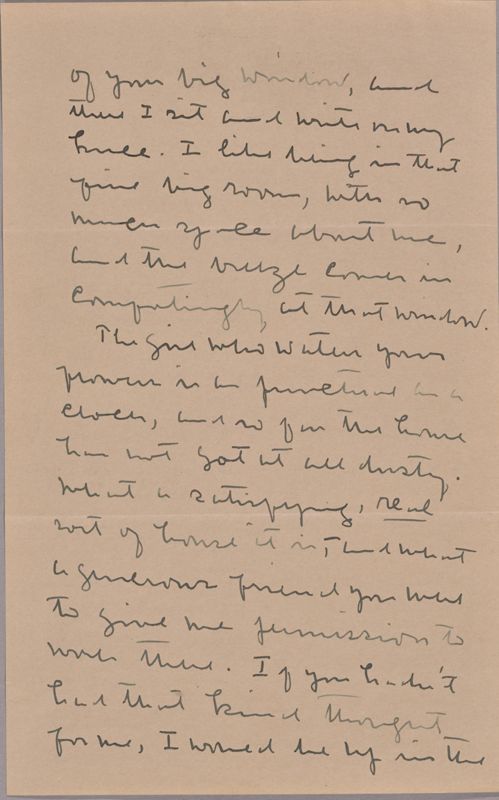 of your big window, and
there I sit and write on my
knee. I like being in that
fine big room, with so
much space about me,
and the breeze comes in
competingly at that window.
The girl who waters your
flowers is as punctual as a
clock, and so far the house
has not got at all dusty.
What a satisfying, real
sort of house it is, and what
a generous friend you were
to give me permission to
work there. If you hadn't
had that kind thought
for me, I would be up in the